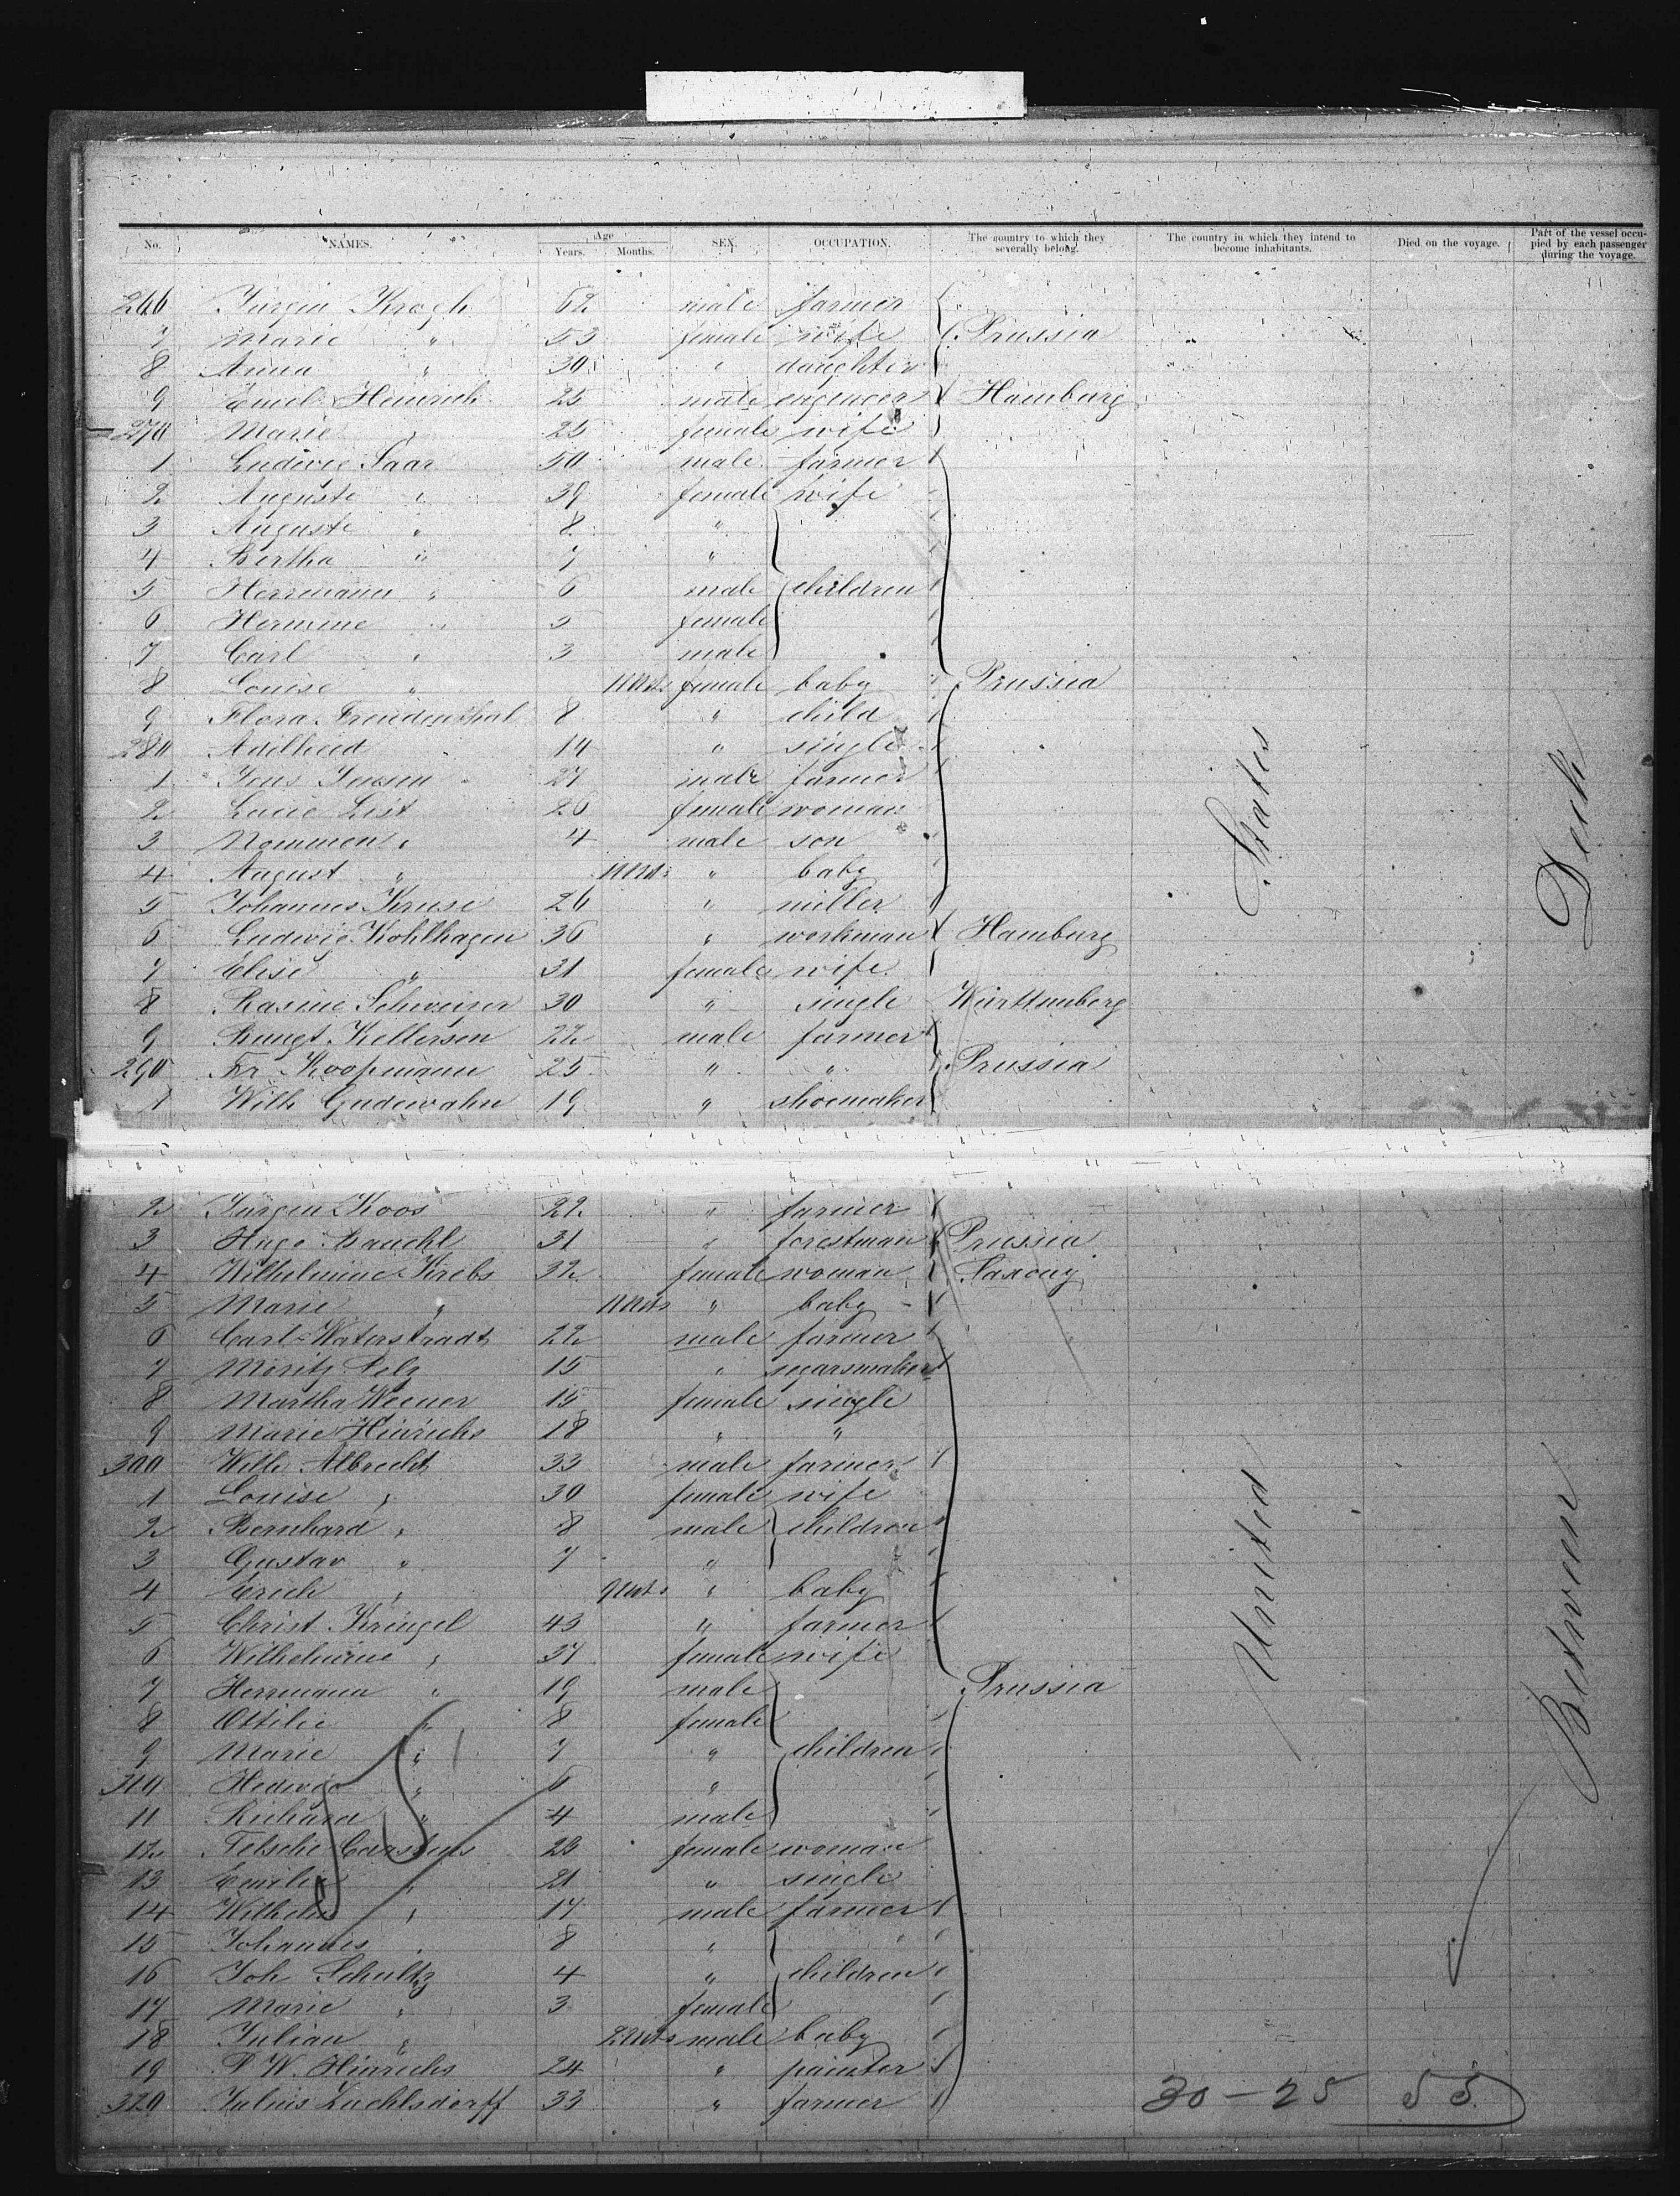 No. NAMES. Age Years. Months. SEX. OCCUPATION. The country to which they severally belong. The country in which they intend to become inhabitants. Died on the voyage. Part of the vessel occupied by each passenger during the voyage.
266 Jürgen Krogh 62 male farmer
7 Marie " 53 female wife Prussia
8 Anna " 30 " daughter
9 Emil Heinrich 25 male engeneer Hamburg
270 Marie " 25 female wife
1 Ludwig Saar 50 male farmer
2 Auguste " 39 female wife
3 Auguste " 8 "
4 Bertha " 7 "
5 Herrmann " 6 male children
6 Hermine " 5 female
7 Carl " 3 male
8 Louise " 11 Mts female baby Prussia
9 Flora Freudenthal 8 " child
280 Adelheid 14 " single
1 Jens Jensen 27 male farmer
2 Lucie List 26 female woman
3 Nommen " 4 male son
4 August " 11 Mts " baby
5 Johannes Kruse 26 " miller
6 Ludwig Kohlhagen 36 " workman Hamburg
7 Elise " 31 female wife
8 Rasine 30 " single Württemberg
9 Kellersen 22 male farmer
290 Fr. Koopmann 25 " " Prussia
1 Wilh Gudewahn 19 " shoemaker
2 Jürgen Koos 22 " farmer
3 Hugo 31 " forestman Prussia
4 Wilhelmine Krebs 32 female woman Saxony
5 Marie " 11 Mts " baby
6 Carl Waterstradt 22 male farmer
7 Moritz 15 " segarsmaker
8 Martha Wegner 15 female single
9 Marie Hinrichs 18 " "
300 Wilh. Albrecht 33 male farmer
1 Louise " 30 female wife
2 Bernhard " 8 male children
3 Gustav " 7 "
4 Erich " 9 Mts " baby
5 Christ. Kringel 43 " farmer
6 Wilhelmine " 37 female wife
7 Herrmann " 19 male Prussia
8 Ottilie " 8 female
9 Marie " 7 " children
310 Hedwig " 6 "
11 Richard " 4 male
12 Telsche Carstens 28 female woman
13 Emilie " 21 " single
14 Wilhelm " 17 male farmer
15 Johannes 8 "
16 Joh Schultz 4 " children
17 Marie " 3 female
18 Julian " 2 Mts male baby
19 P. W. Hinrichs 24 " painter
320 Julius 33 " farmer
United States
Between Deck
30 - 25 55